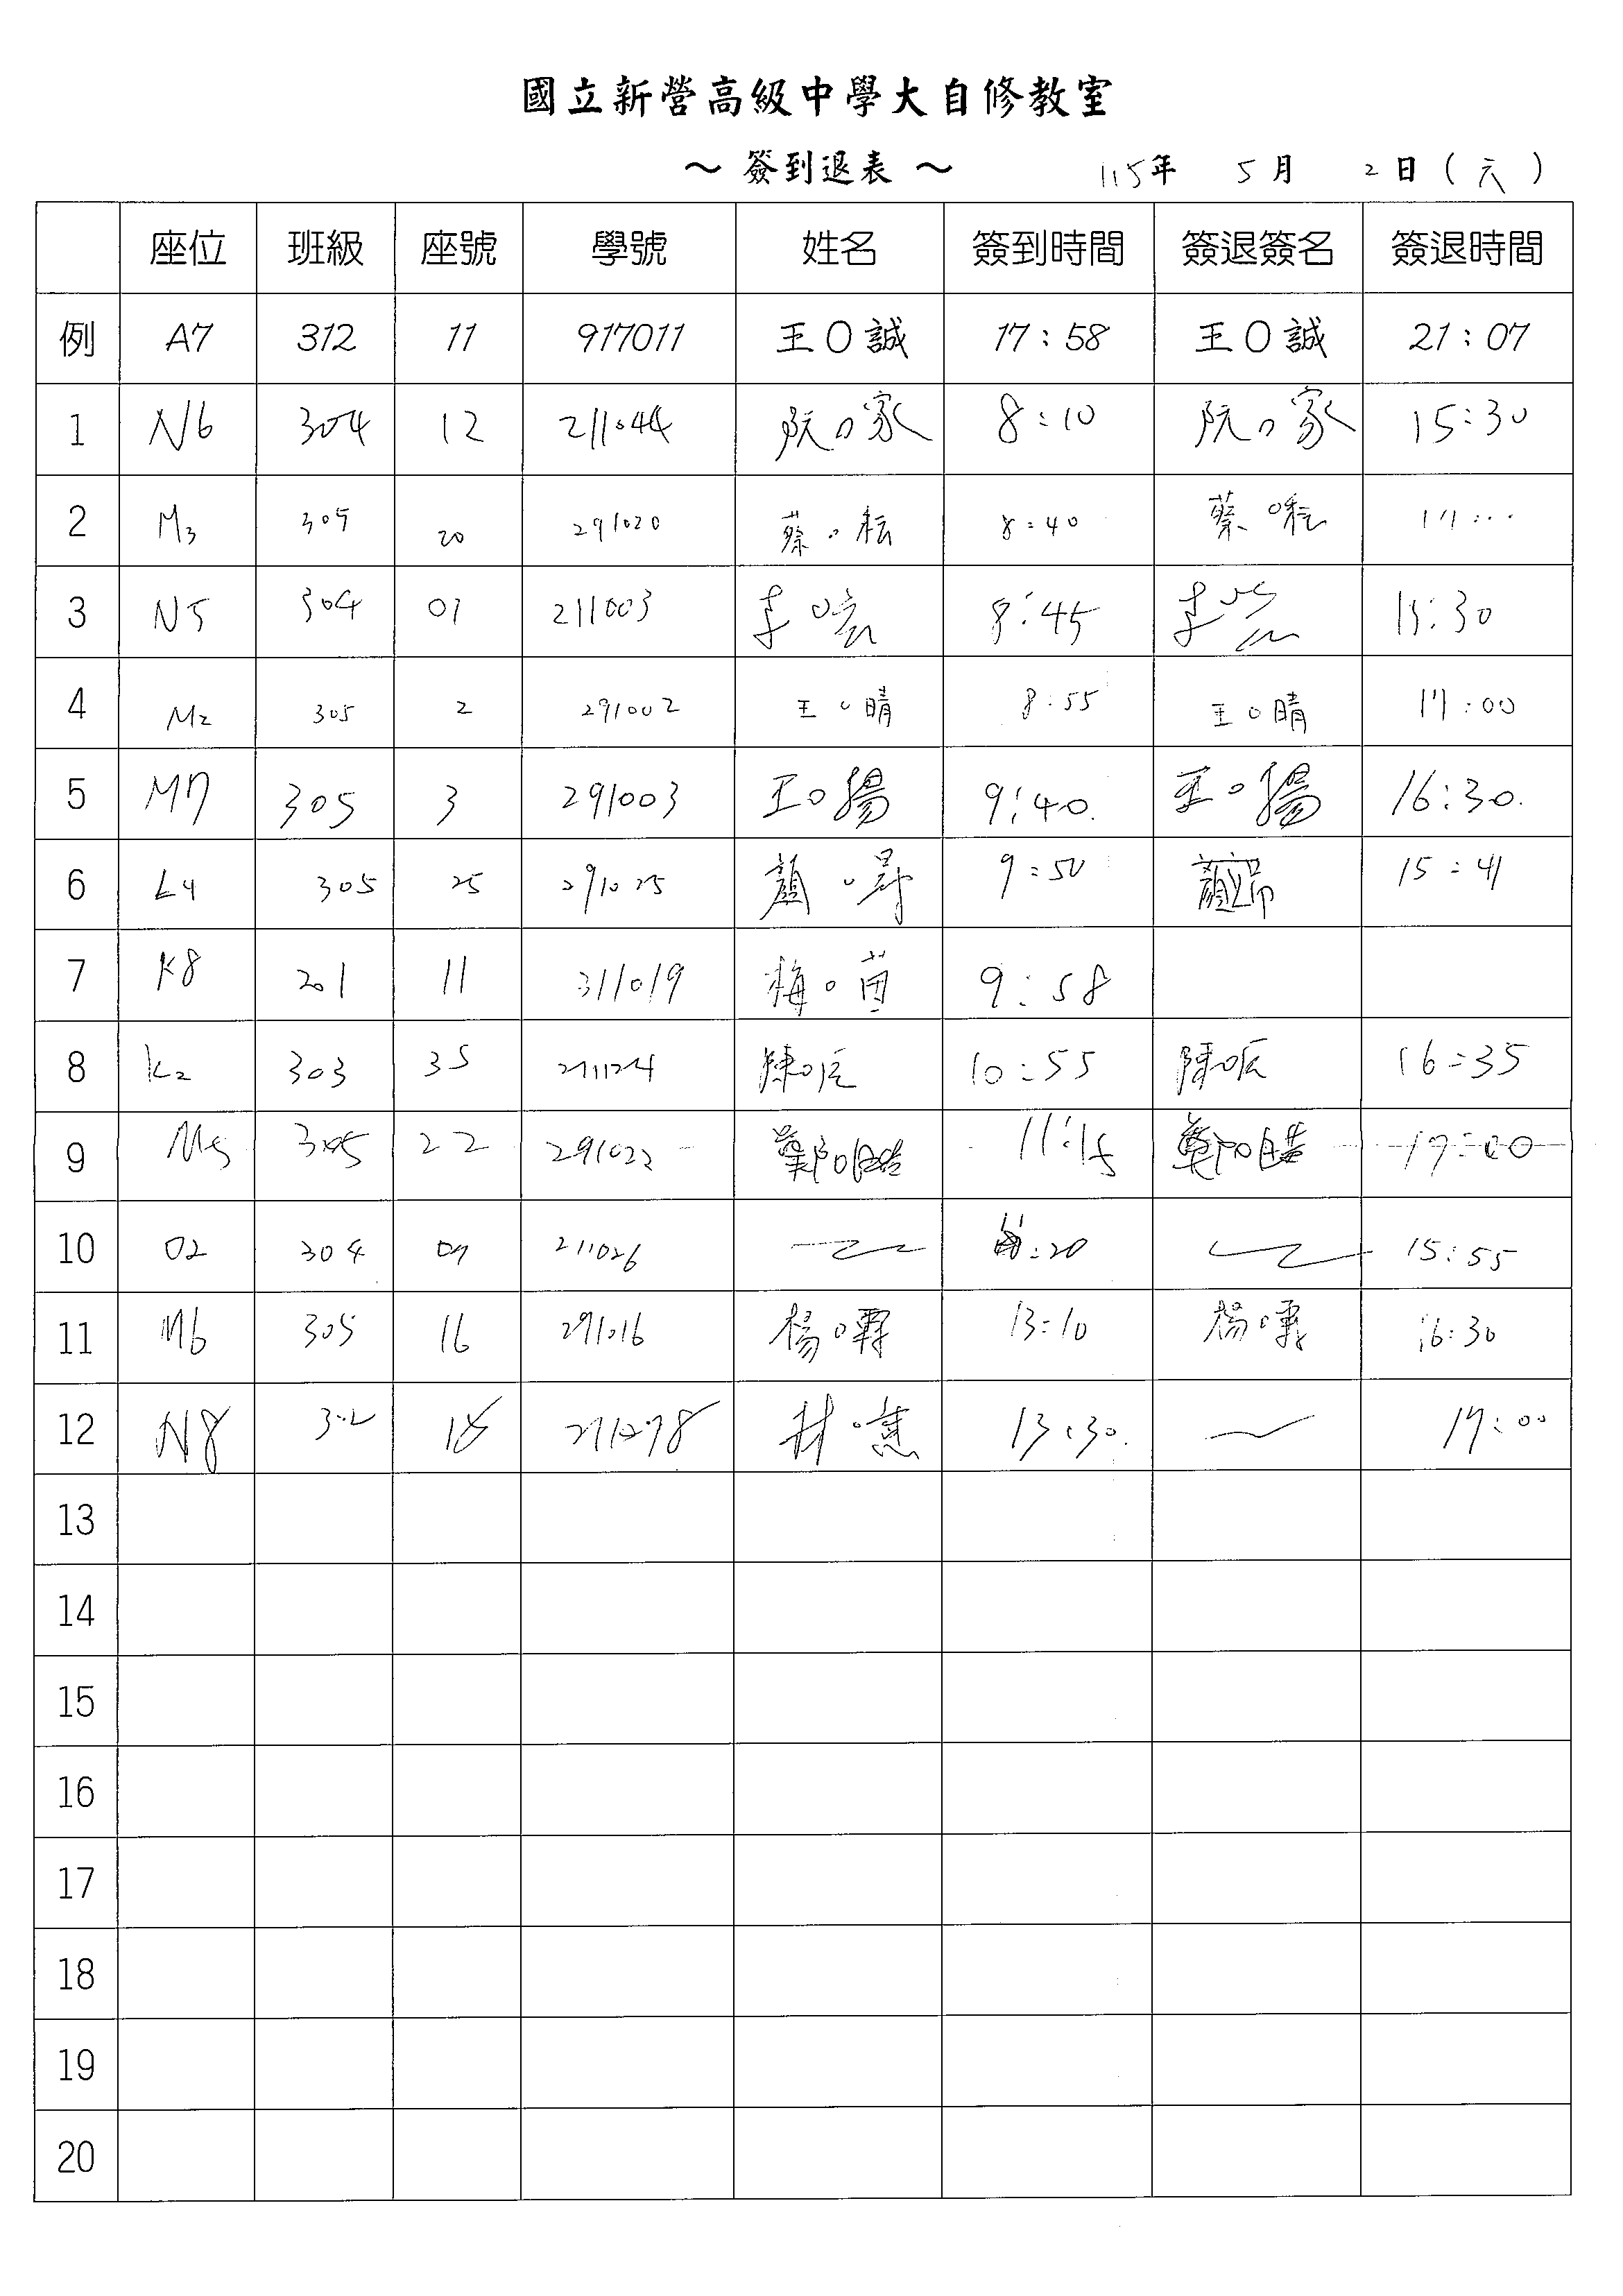 國立新營高級中學大自修教室
～ 簽到退表 ～ 115年 5月 2日 (六)
座位 班級 座號 學號 姓名 簽到時間 簽退簽名 簽退時間
例 A7 312 11 917011 王O誠 17:58 王O誠 21:07
1 N6 304 12 211044 阮O家 8:10 阮O家 15:30
2 M3 305 20 291020 蔡O耘 8:40 蔡O耘
3 N5 304 01 211003 李O宏 8:45 李 15:30
4 M2 305 2 291002 王O晴 8:55 王O晴 17:00
5 M7 305 3 291003 王O揚 9:40 王O揚 16:30
6 L4 305 25 291025 顏O 9:50 顏 15:41
7 K8 201 11 311019 梅O茵 9:58
8 K2 303 35 211124 陳O 10:55 陳O 16:35
9 M5 305 22 291022 鄭O皓 11:15 鄭O皓 17:00
10 02 304 07 211026 :20 15:55
11 M6 305 16 291016 楊O霖 13:10 楊O 16:30
12 N8 302 林O蕙 13:30 17:00
13
14
15
16
17
18
19
20